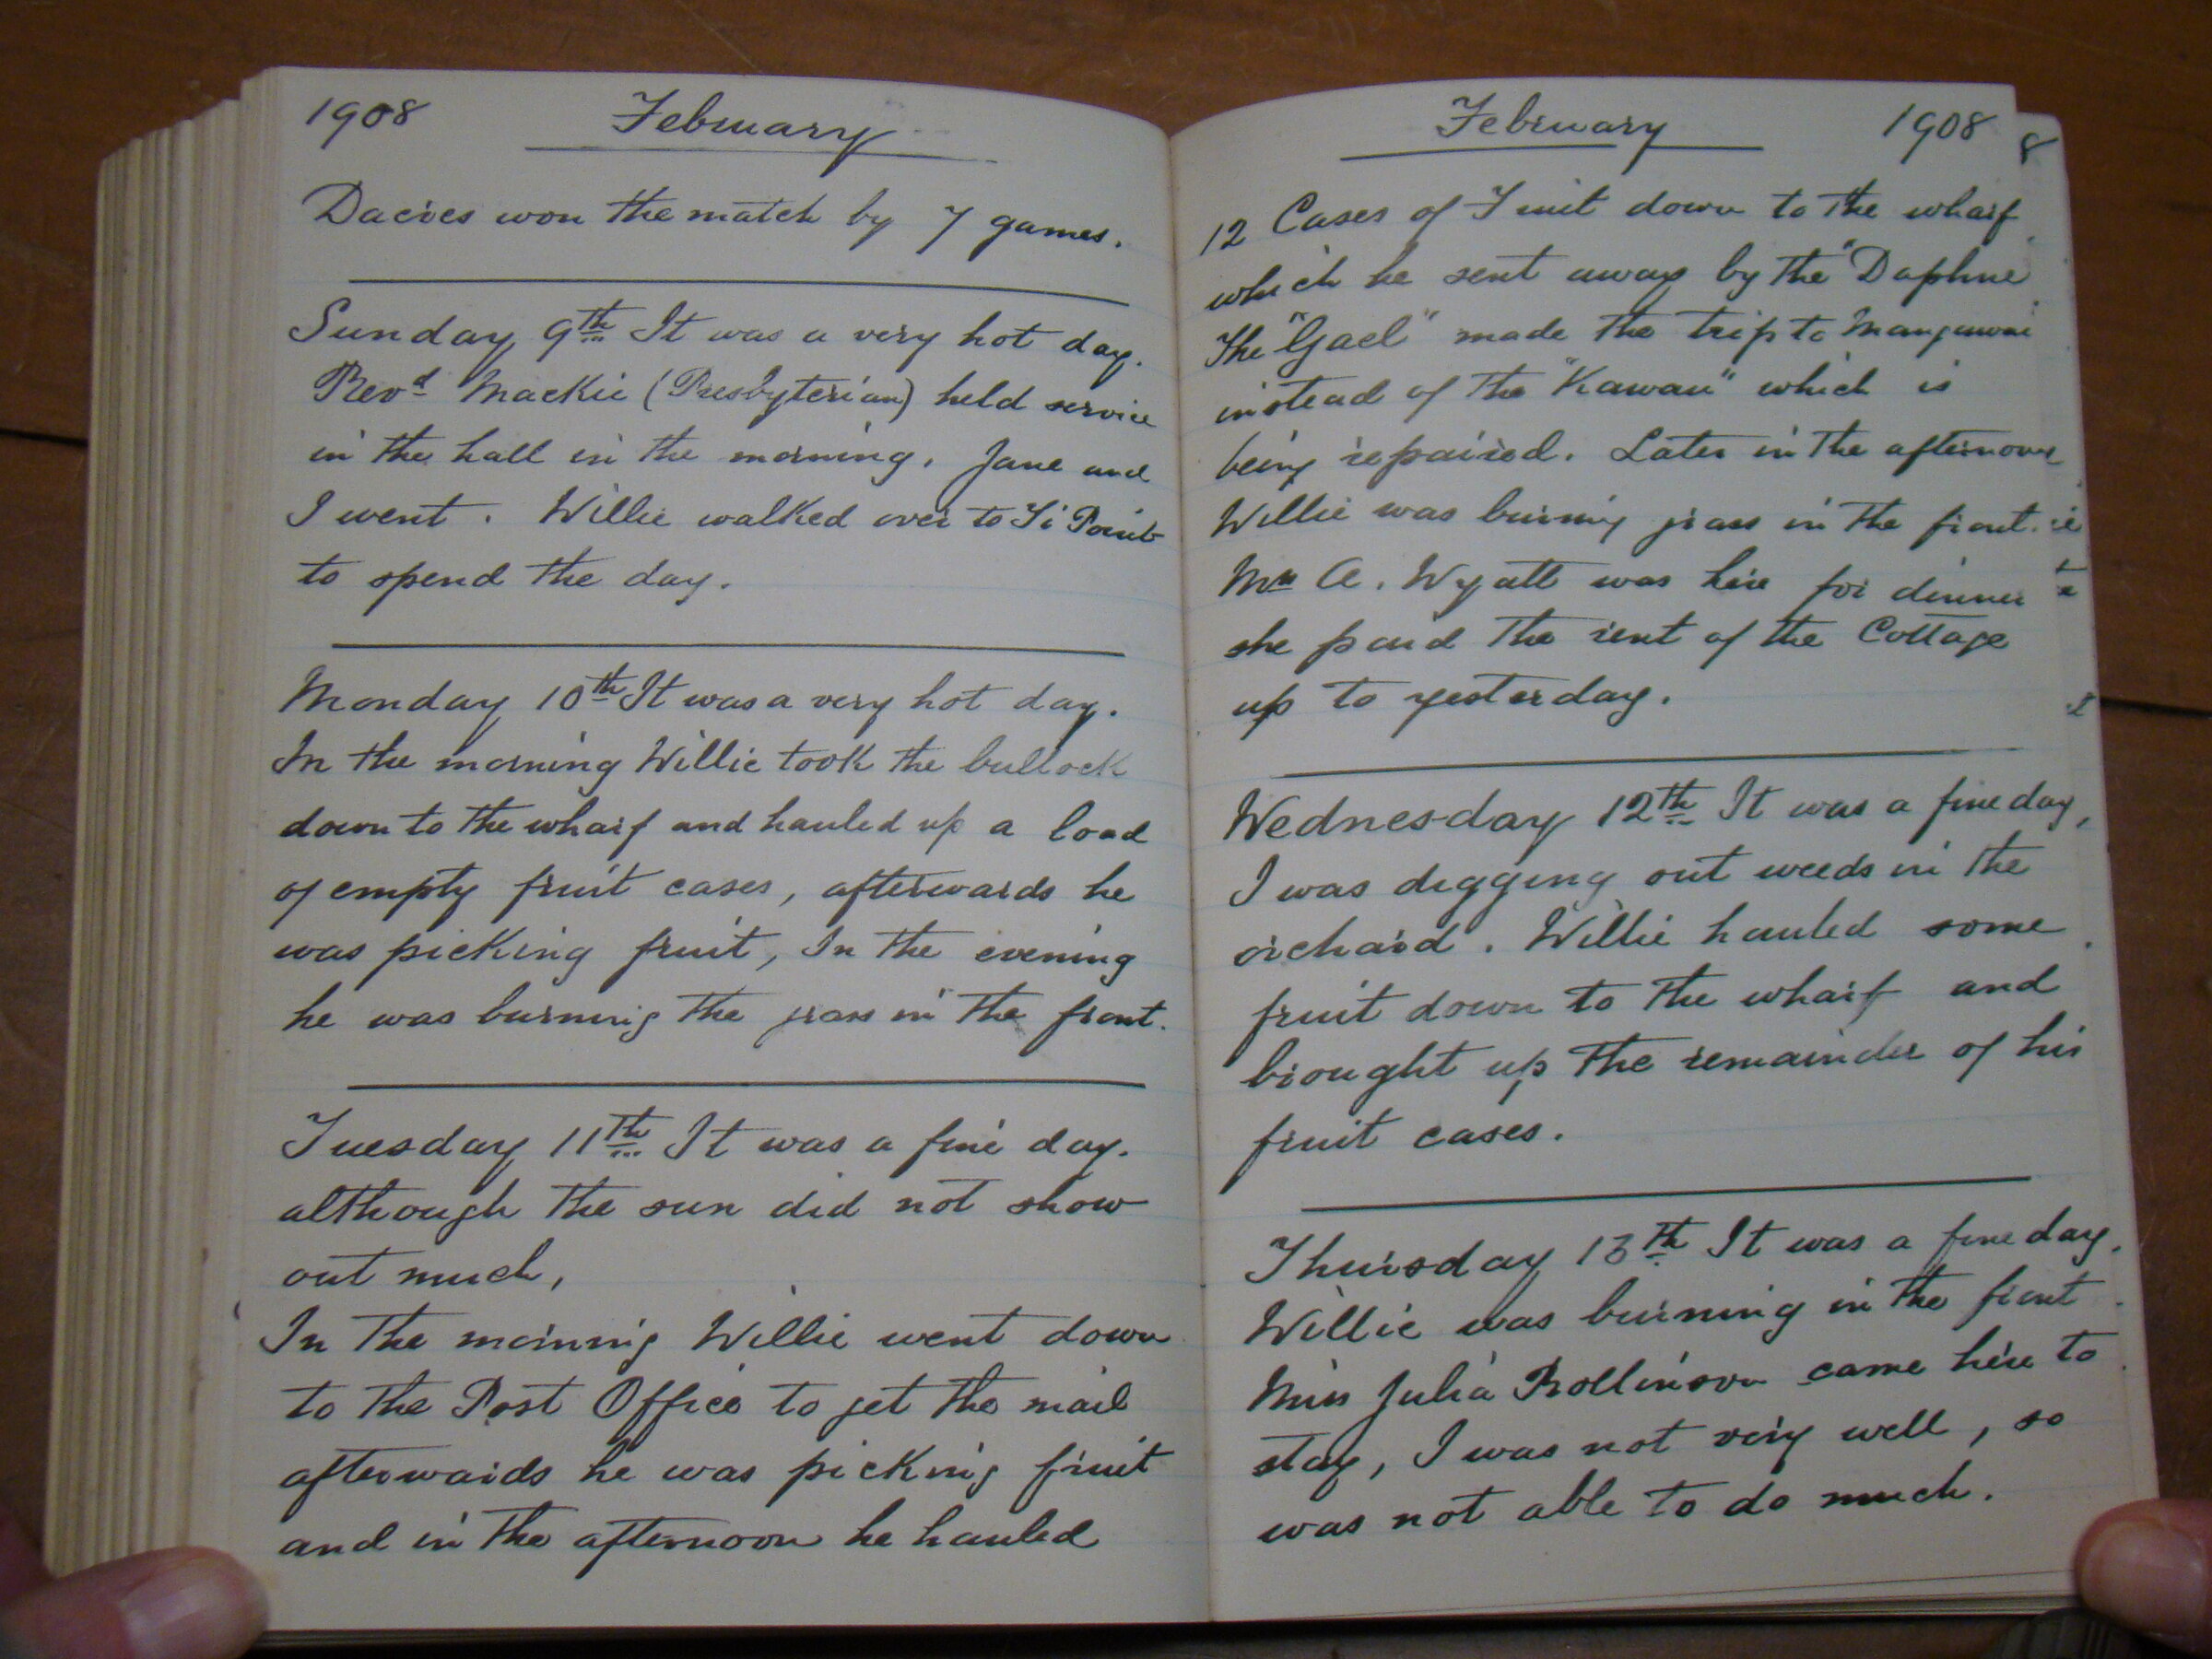 1908 February
Dacies won the match by 7 games.
Sunday 9th It was a very hot day.
Revd Mackie (Presbyterian) held service
in the hall in the morning. Jane and
I went. Willie walked over to Ti Point
to spend the day.
Monday 10th It was a very hot day.
In the morning Willie took the bullock
down to the wharf and hauled up a load
of empty fruit cases, afterwards he
was picking fruit, In the evening
he was burning the grass in the front.
Tuesday 11th It was a fine day.
although the sun did not show
out much,
In the morning Willie went down
to the Post Office to get the mail
afterwards he was picking fruit
and in the afternoon he hauled
February 1908
12 Cases of Fruit down to the wharf
which he sent away by the "Daphne
The "Gael" made the trip to Mangawai
instead of the "Kawau" which is
being repaired. Later in the afternoon
Willie was burning grass in the front.
Mrs A. Wyatt was here for dinner
she paid the rent of the Cottage
up to yesterday.
Wednesday 12th It was a fine day,
I was digging out weeds in the
orchard. Willie hauled some
fruit down to the wharf and
brought up the remainder of his
fruit cases.
Thursday 13th It was a fine day.
Willie was burning in the front
Miss Julia Rollinson came here to
stay, I was not very well, so
was not able to do much.